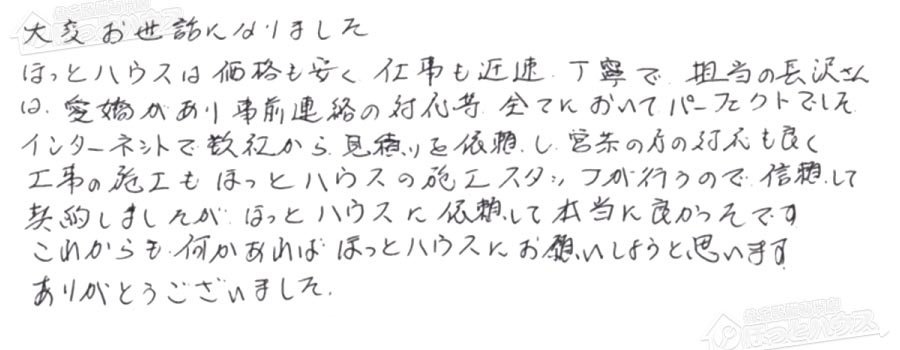 大変お世話になりました
ほっとハウスは価格も安く 仕事も迅速 丁寧で 担当の長沢さん
は、愛嬌があり事前連絡の対応等 全てにおいてパーフェクトでした
インターネットで数社から見積りを依頼し 営業の方の対応も良く
工事の施工もほっとハウスの施工スタッフが行うので信頼して
契約しましたが ほっとハウスに依頼して本当に良かったです
これからも何かあればほっとハウスにお願いしようと思います
ありがとうございました。
ほっとハウス